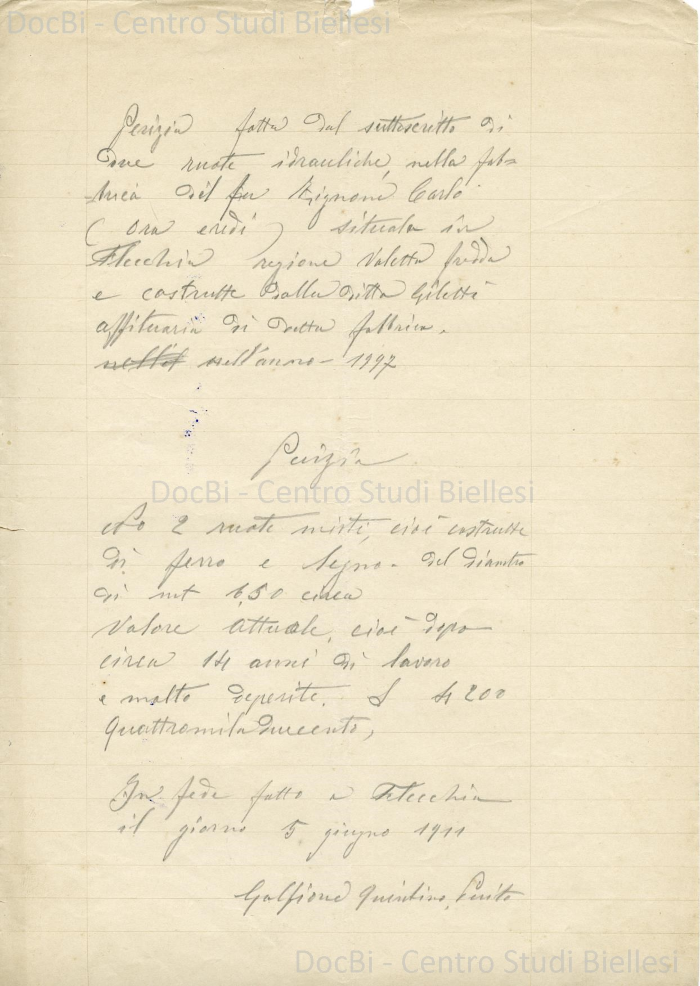 DocBi - Centro Studi Biellesi
Perizia fatta dal sottoscritto di
due ruote idrauliche, nella fab=
brica del fu Zignone Carlo
( ora eredi ) situata in
Flecchia regione Valetta fredda
e costrutte dalla ditta Giletti
affituaria di detta fabbrica.
nell'anno 1897
Perizia
DocBi - Centro Studi Biellesi
No 2 ruote miste, cioè costrutte
di ferro e legno - del diametro
di mt 6,50 circa
Valore attuale, cioè dopo
circa 14 anni di lavoro
e molto deperite. L 4200
Quattromiladuecento,
In fede fatto a Flecchia
il giorno 5 giugno 1911
Golfione Quintino, Perito
DocBi - Centro Studi Biellesi